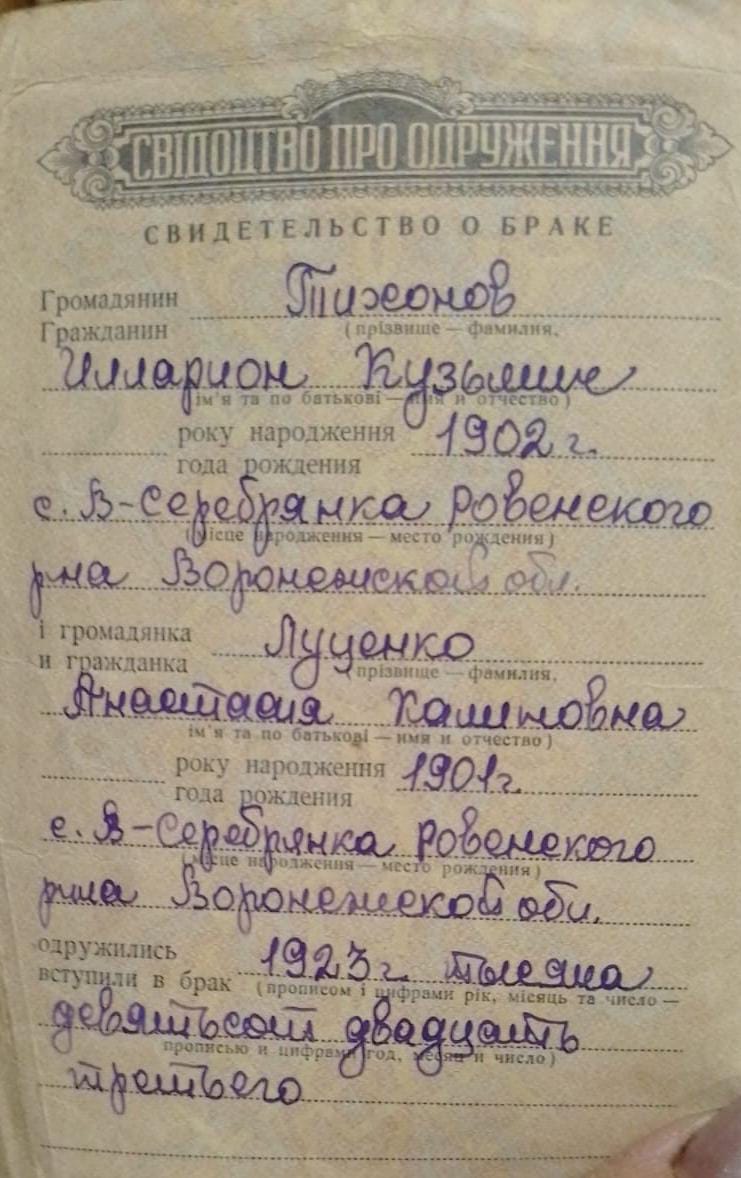 СВІДОЦТВО ПРО ОДРУЖЕННЯ
СВИДЕТЕЛЬСТВО О БРАКЕ
Громадянин Тихонов
Гражданин (прізвище — фамилия,
Илларион Кузьмич
ім'я та по батькові — имя и отчество)
року народження 1902 г.
года рождения
с. В-Серебрянка Ровенского
(місце народження — место рождения)
р-на Воронежской обл.
і громадянка Луценко
и гражданка (прізвище — фамилия,
Анастасия Халиновна
ім'я та по батькові — имя и отчество)
року народження 1901 г.
года рождения
с. В-Серебрянка Ровенского
(місце народження — место рождения)
р-на Воронежской обл.
одружились 1923 г. тысяча
вступили в брак (прописом і цифрами рік, місяць та число —
девятьсот двадцать
прописью и цифрами год, месяц и число)
третьего